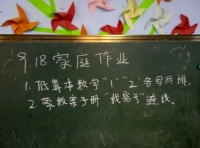 9.18家庭作业
1.低算本数字“1”“2”各写两排。
2.学数学手册“找易字”连线。